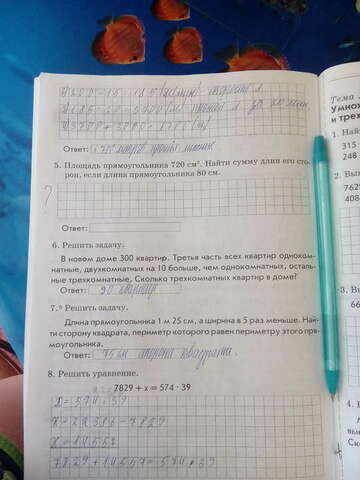 Ответ:
5. Площадь прямоугольника 720 см². Найти сумму длин его сто-
рон, если длина прямоугольника 80 см.
?
Ответ:
6. Решить задачу.
В новом доме 300 квартир. Третья часть всех квартир одноком-
натные, двухкомнатных на 10 больше, чем однокомнатных, осталь-
ные трехкомнатные. Сколько трехкомнатных квартир в доме?
Ответ: 90 квартир
7.* Решить задачу.
Длина прямоугольника 1 м 25 см, а ширина в 5 раз меньше. Най-
ти сторону квадрата, периметр которого равен периметру этого пря-
моугольника.
Ответ: 75 см сторона квадрата.
8. Решить уравнение.
7829 + x = 574 · 39
x = 574 · 39
x = 22386 - 7829
x = 14557
7829 + 14557 = 574 · 39
Тема
Умнож
и трех
1. Най
315
248
2. Вы
762
409
3. Вы
4.
вы
Ско